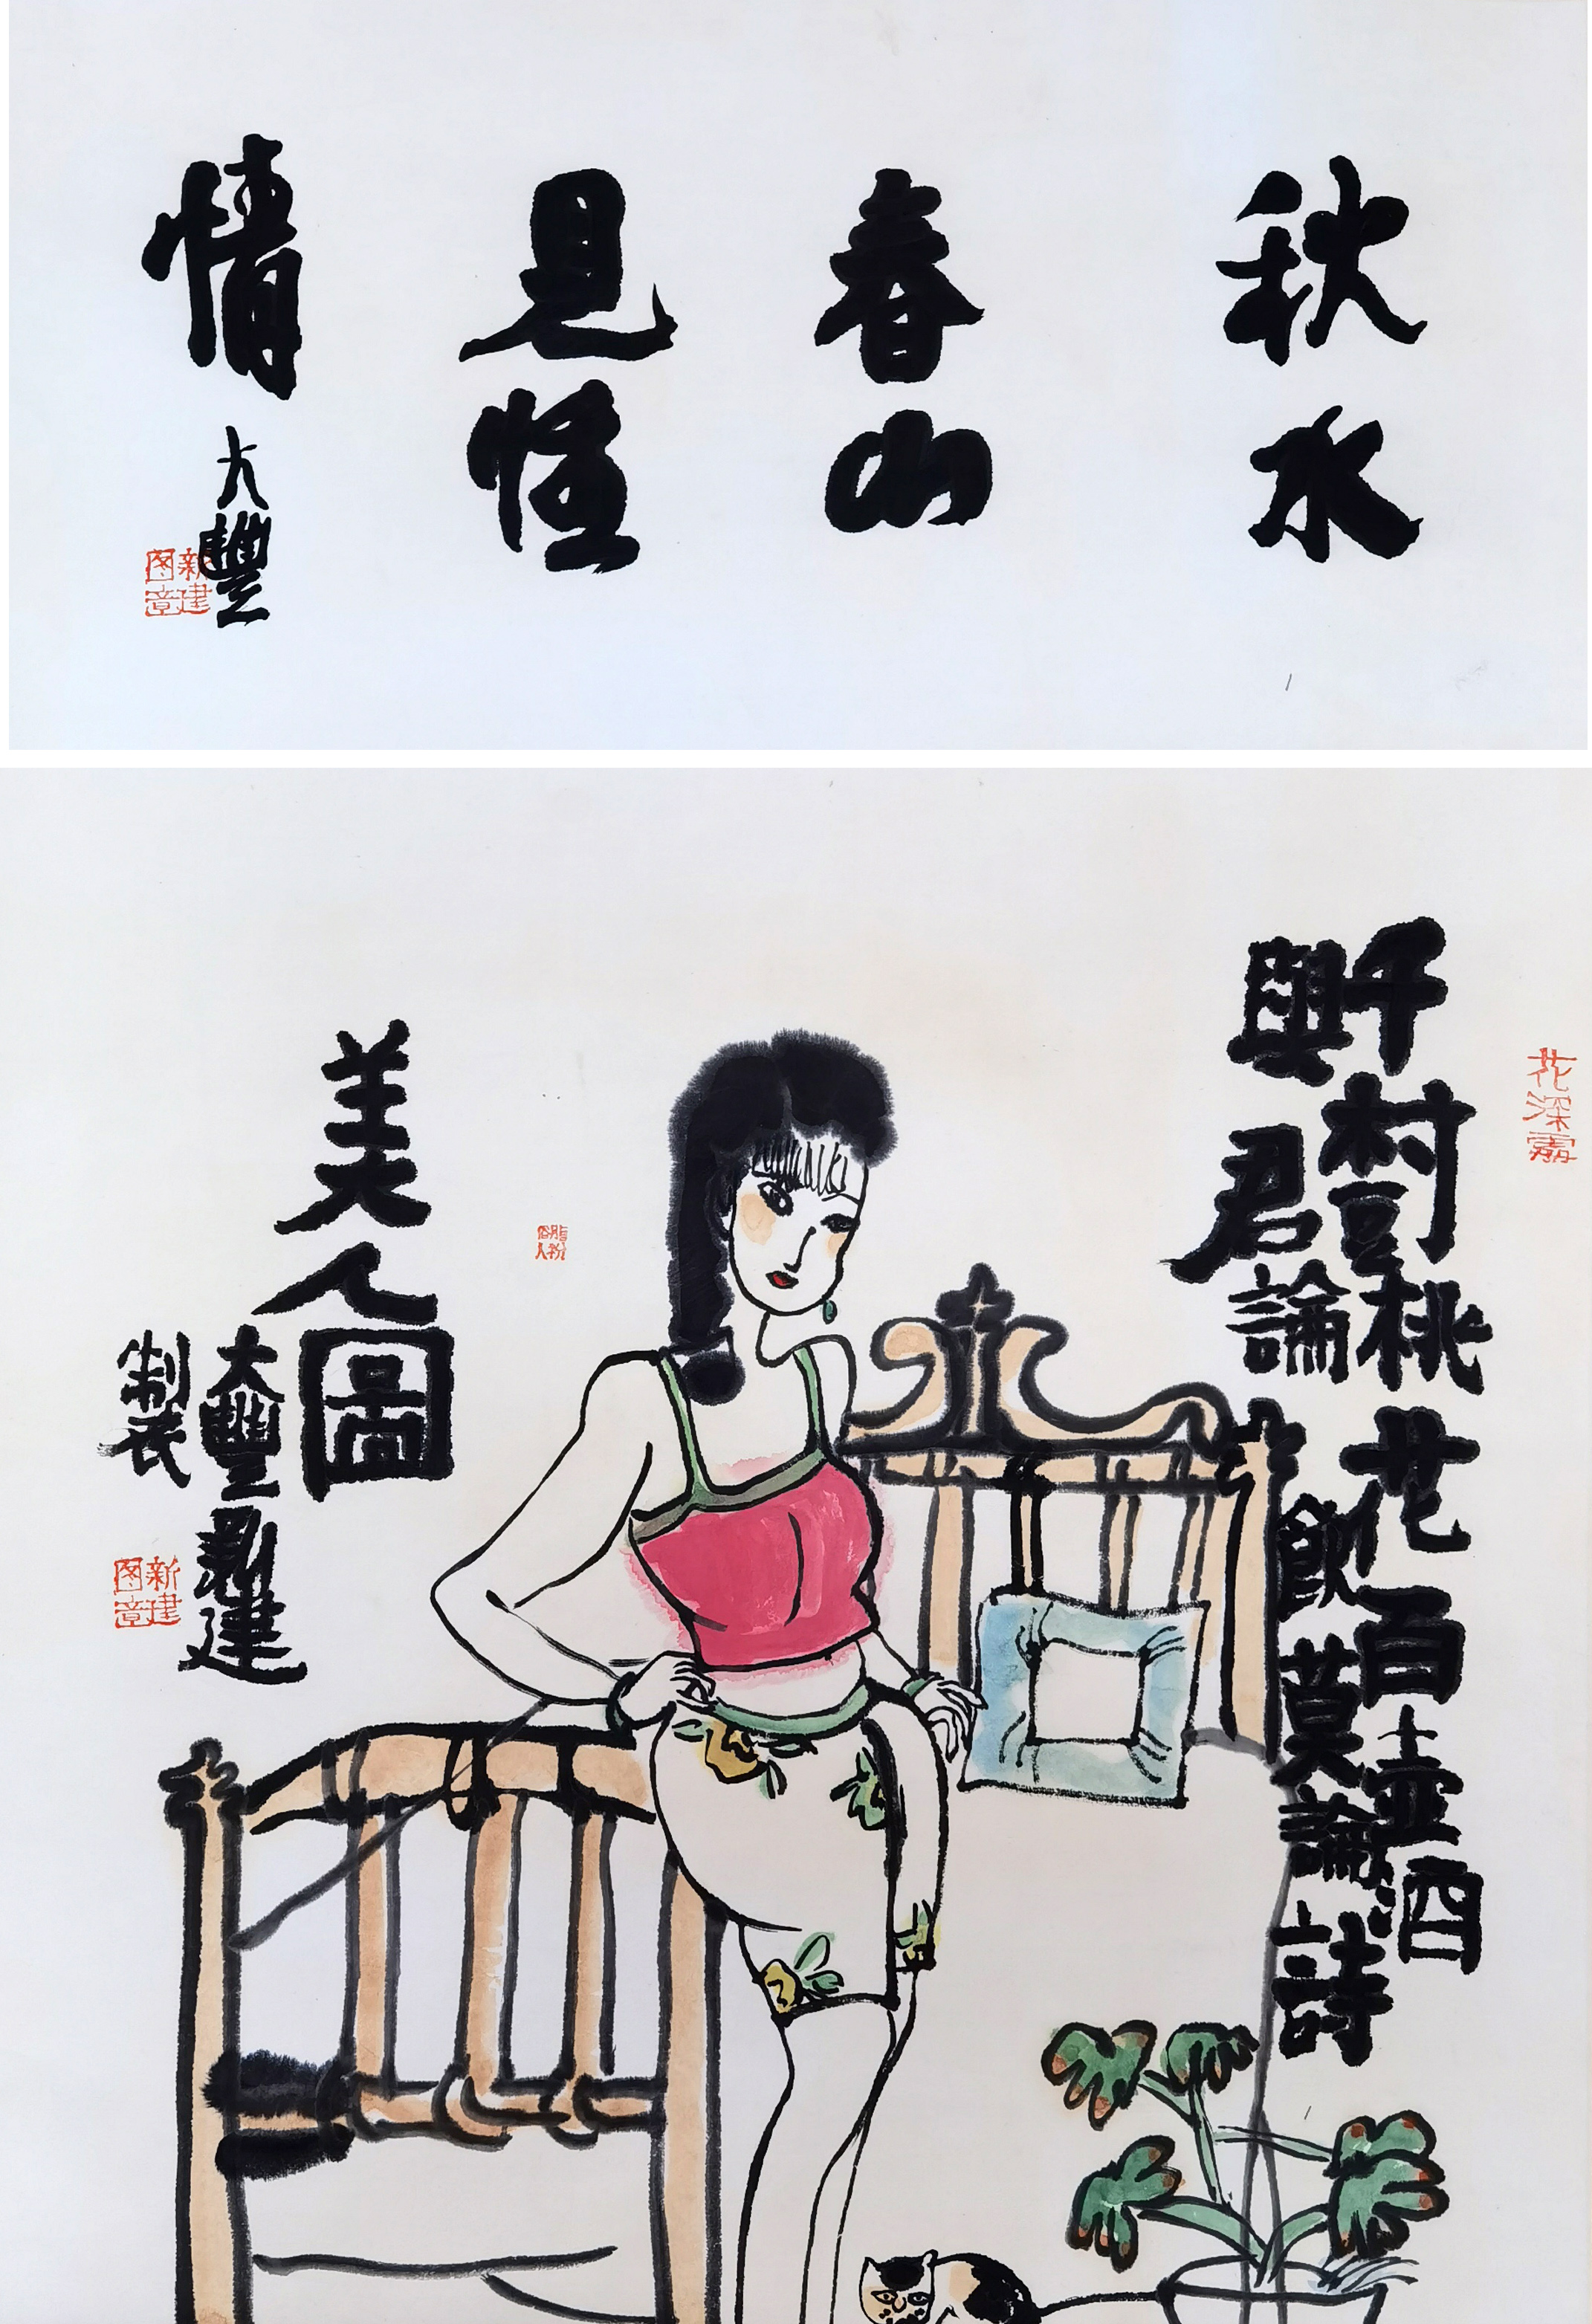 秋水
春山
見性
情
大豐
新建图章
花深
千樹桃花百壺酒
與君論飲莫論詩
脂粉俗人
美人圖
大豐新建
製
新建图章